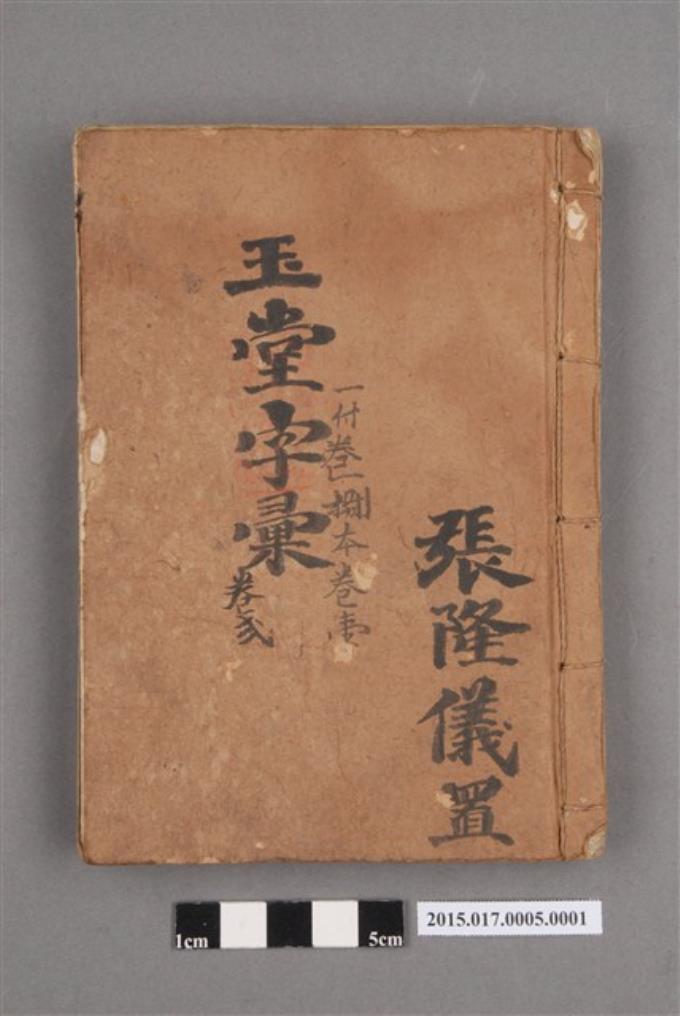 張隆儀置
一付卷一捌本卷壹
玉堂字彙
卷弍
1cm
5cm
2015.017.0005.0001